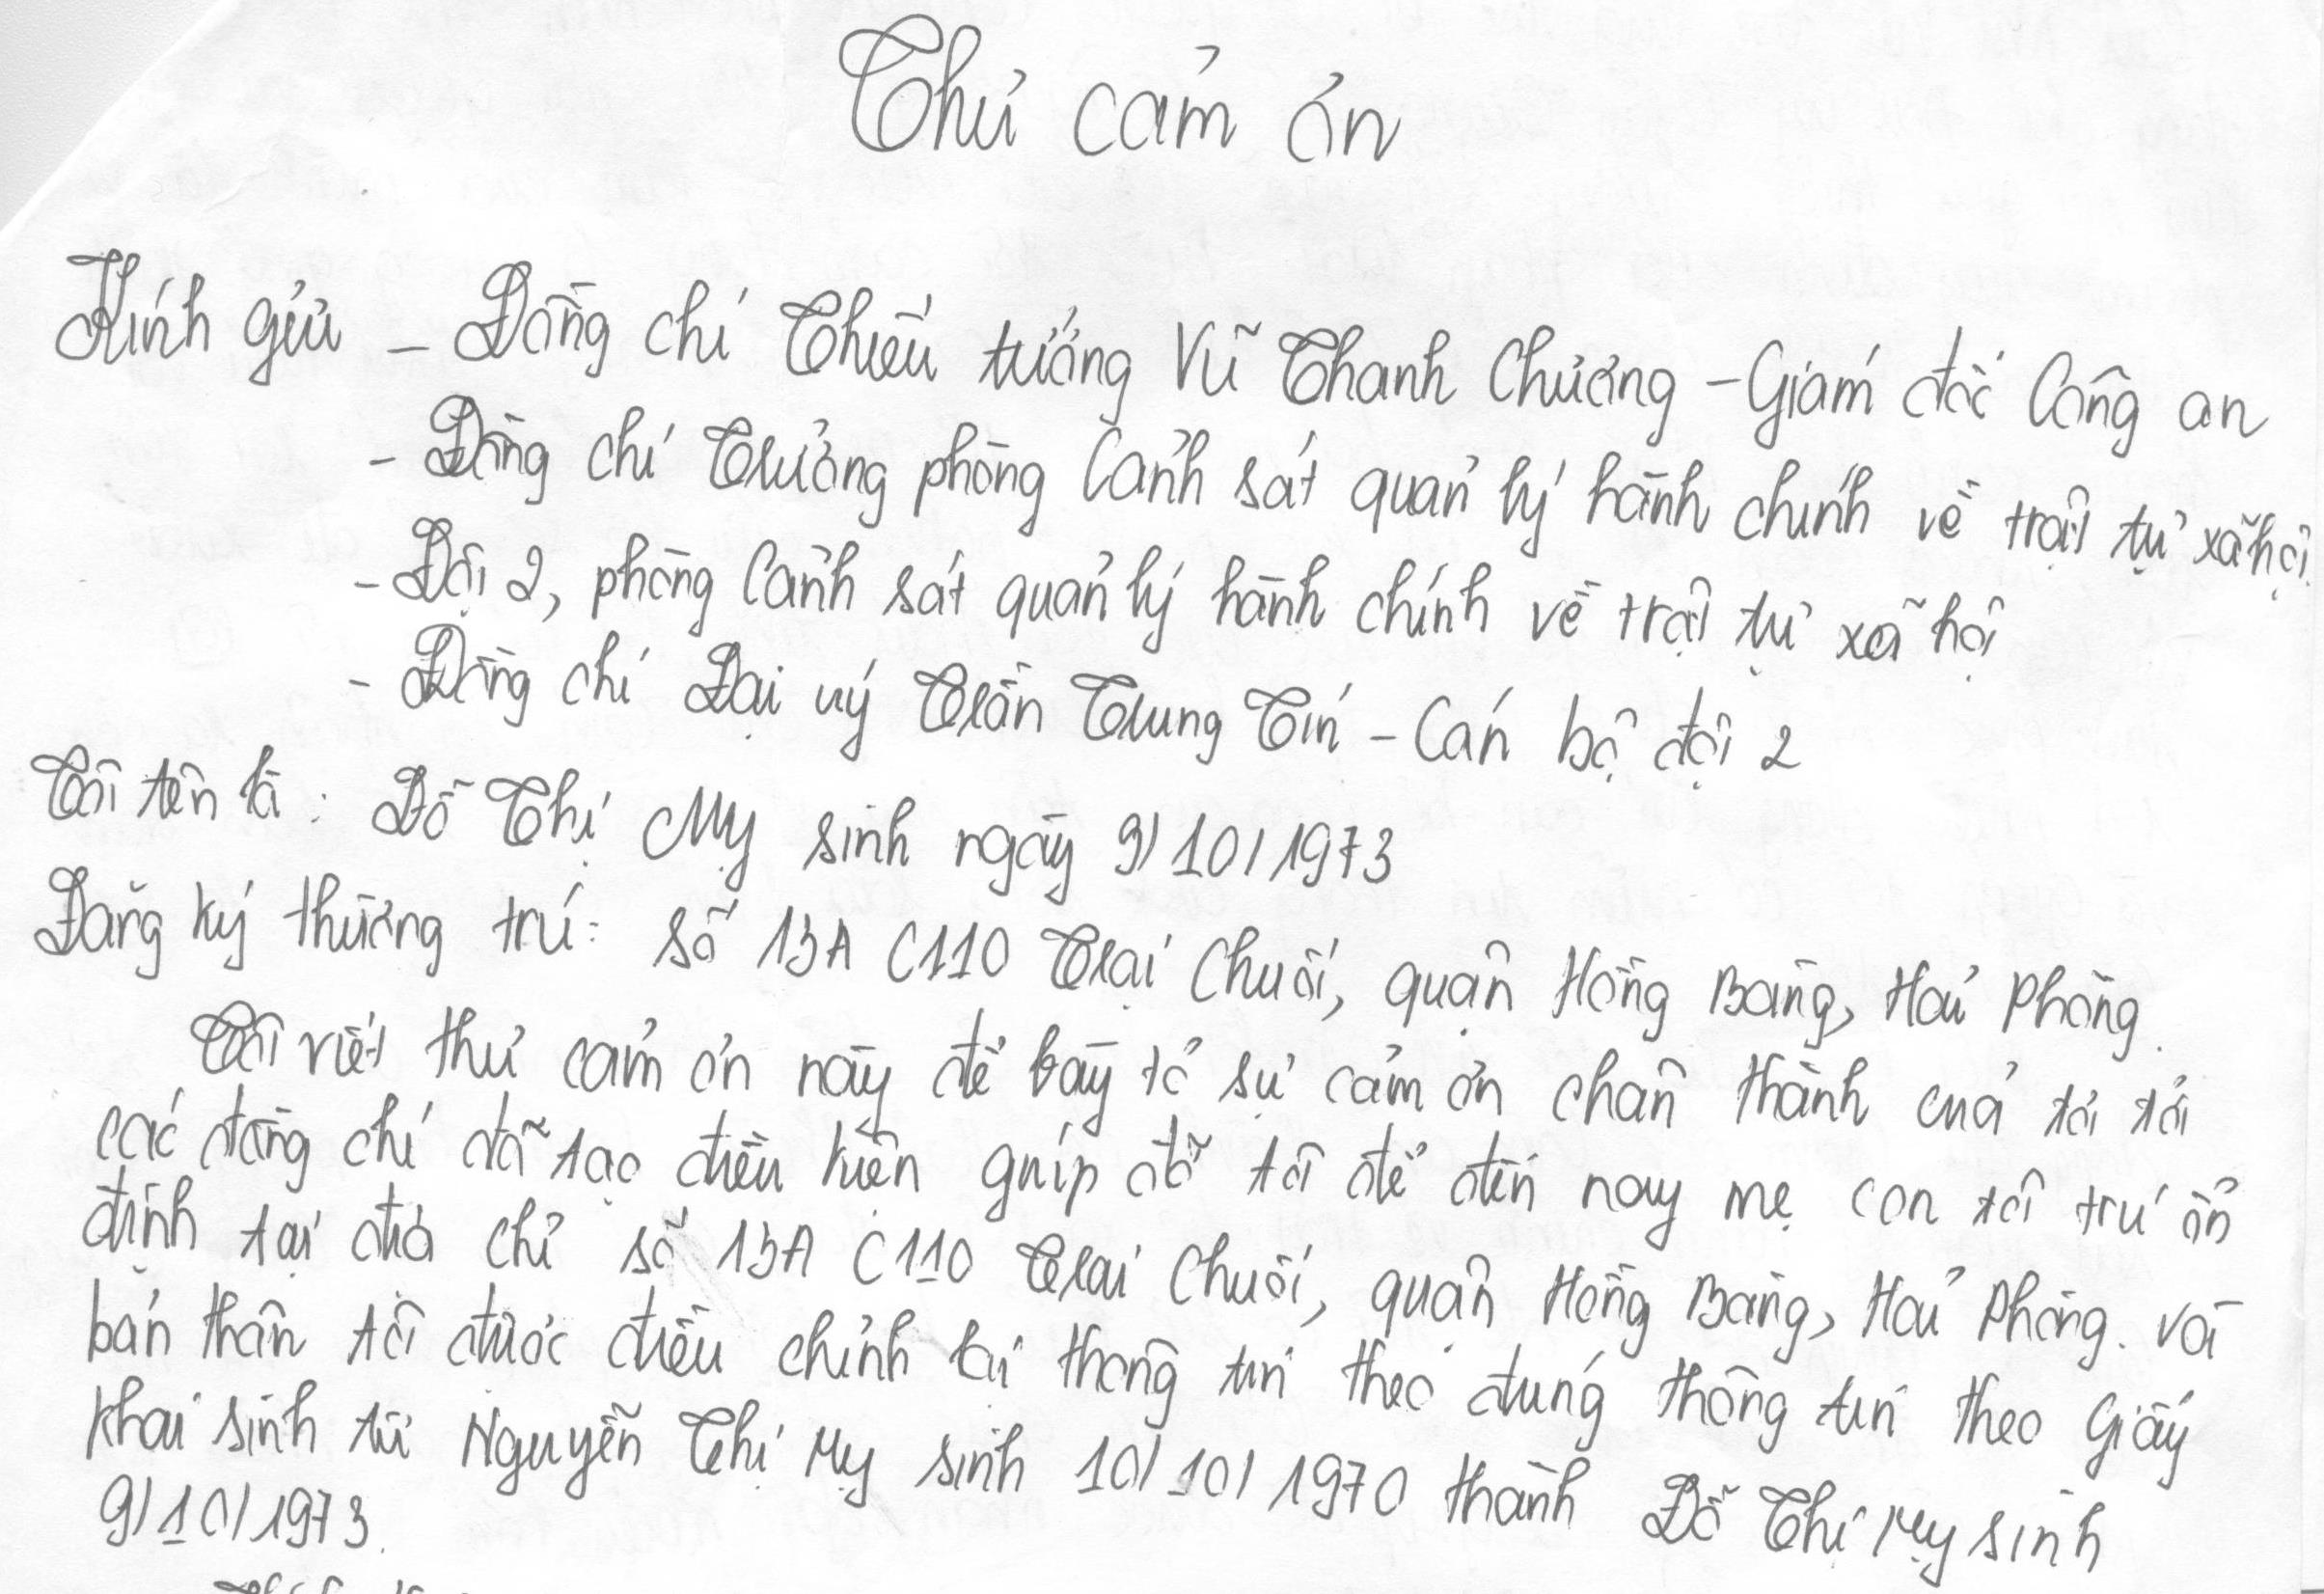 Thư cảm ơn
Kính gửi - Đồng chí Thiếu tướng Vũ Thanh Chương - Giám đốc Công an
- Đồng chí Trưởng phòng Cảnh sát quản lý hành chính về trật tự xã hội.
- Đội 2, phòng Cảnh sát quản lý hành chính về trật tự xã hội
- Đồng chí Đại uý Trần Trung Tín - Cán bộ đội 2
Tôi tên là: Đỗ Thị My sinh ngày 9/10/1973
Đăng ký thường trú: số 13A C110 Trại Chuối, quận Hồng Bàng, Hải Phòng.
Tôi viết thư cảm ơn này để bày tỏ sự cảm ơn chân thành của tôi tới
các đồng chí đã tạo điều kiện giúp đỡ tôi để đến nay mẹ con tôi trú ổn
định tại địa chỉ số 13A C110 Trại Chuối, quận Hồng Bàng, Hải Phòng. Và
bản thân tôi được điều chỉnh lại thông tin theo đúng thông tin theo Giấy
khai sinh từ Nguyễn Thị My sinh 10/10/1970 thành Đỗ Thị My sinh
9/10/1973.